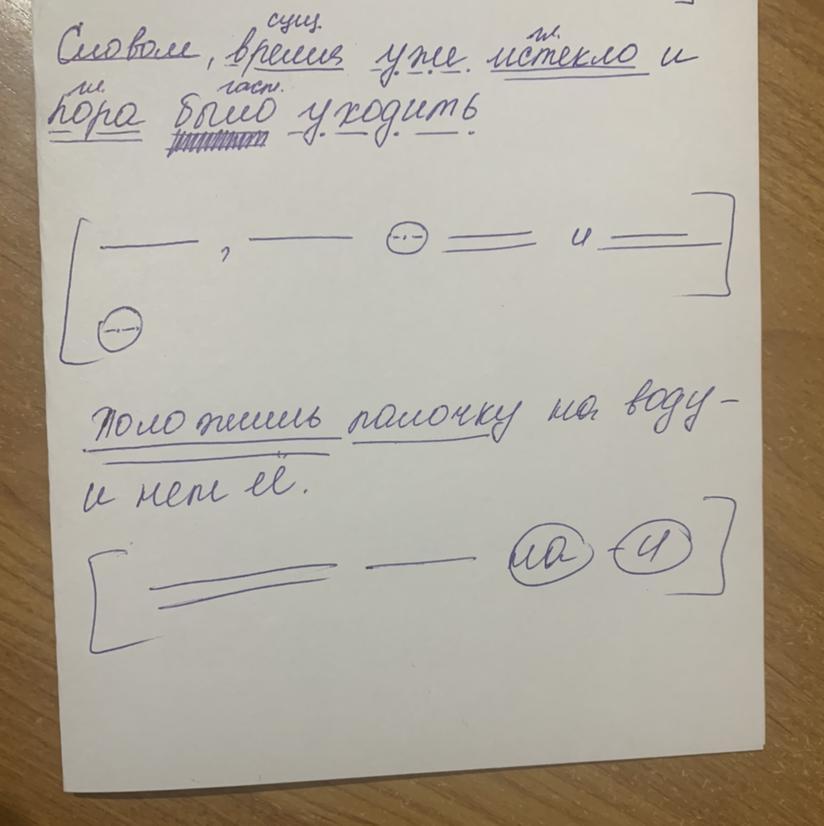 сущ. гл.
Словом, время уже истекло и
гл. част.
пора было уходить
, и
Положишь палочку на воду –
и нет её.
на – и